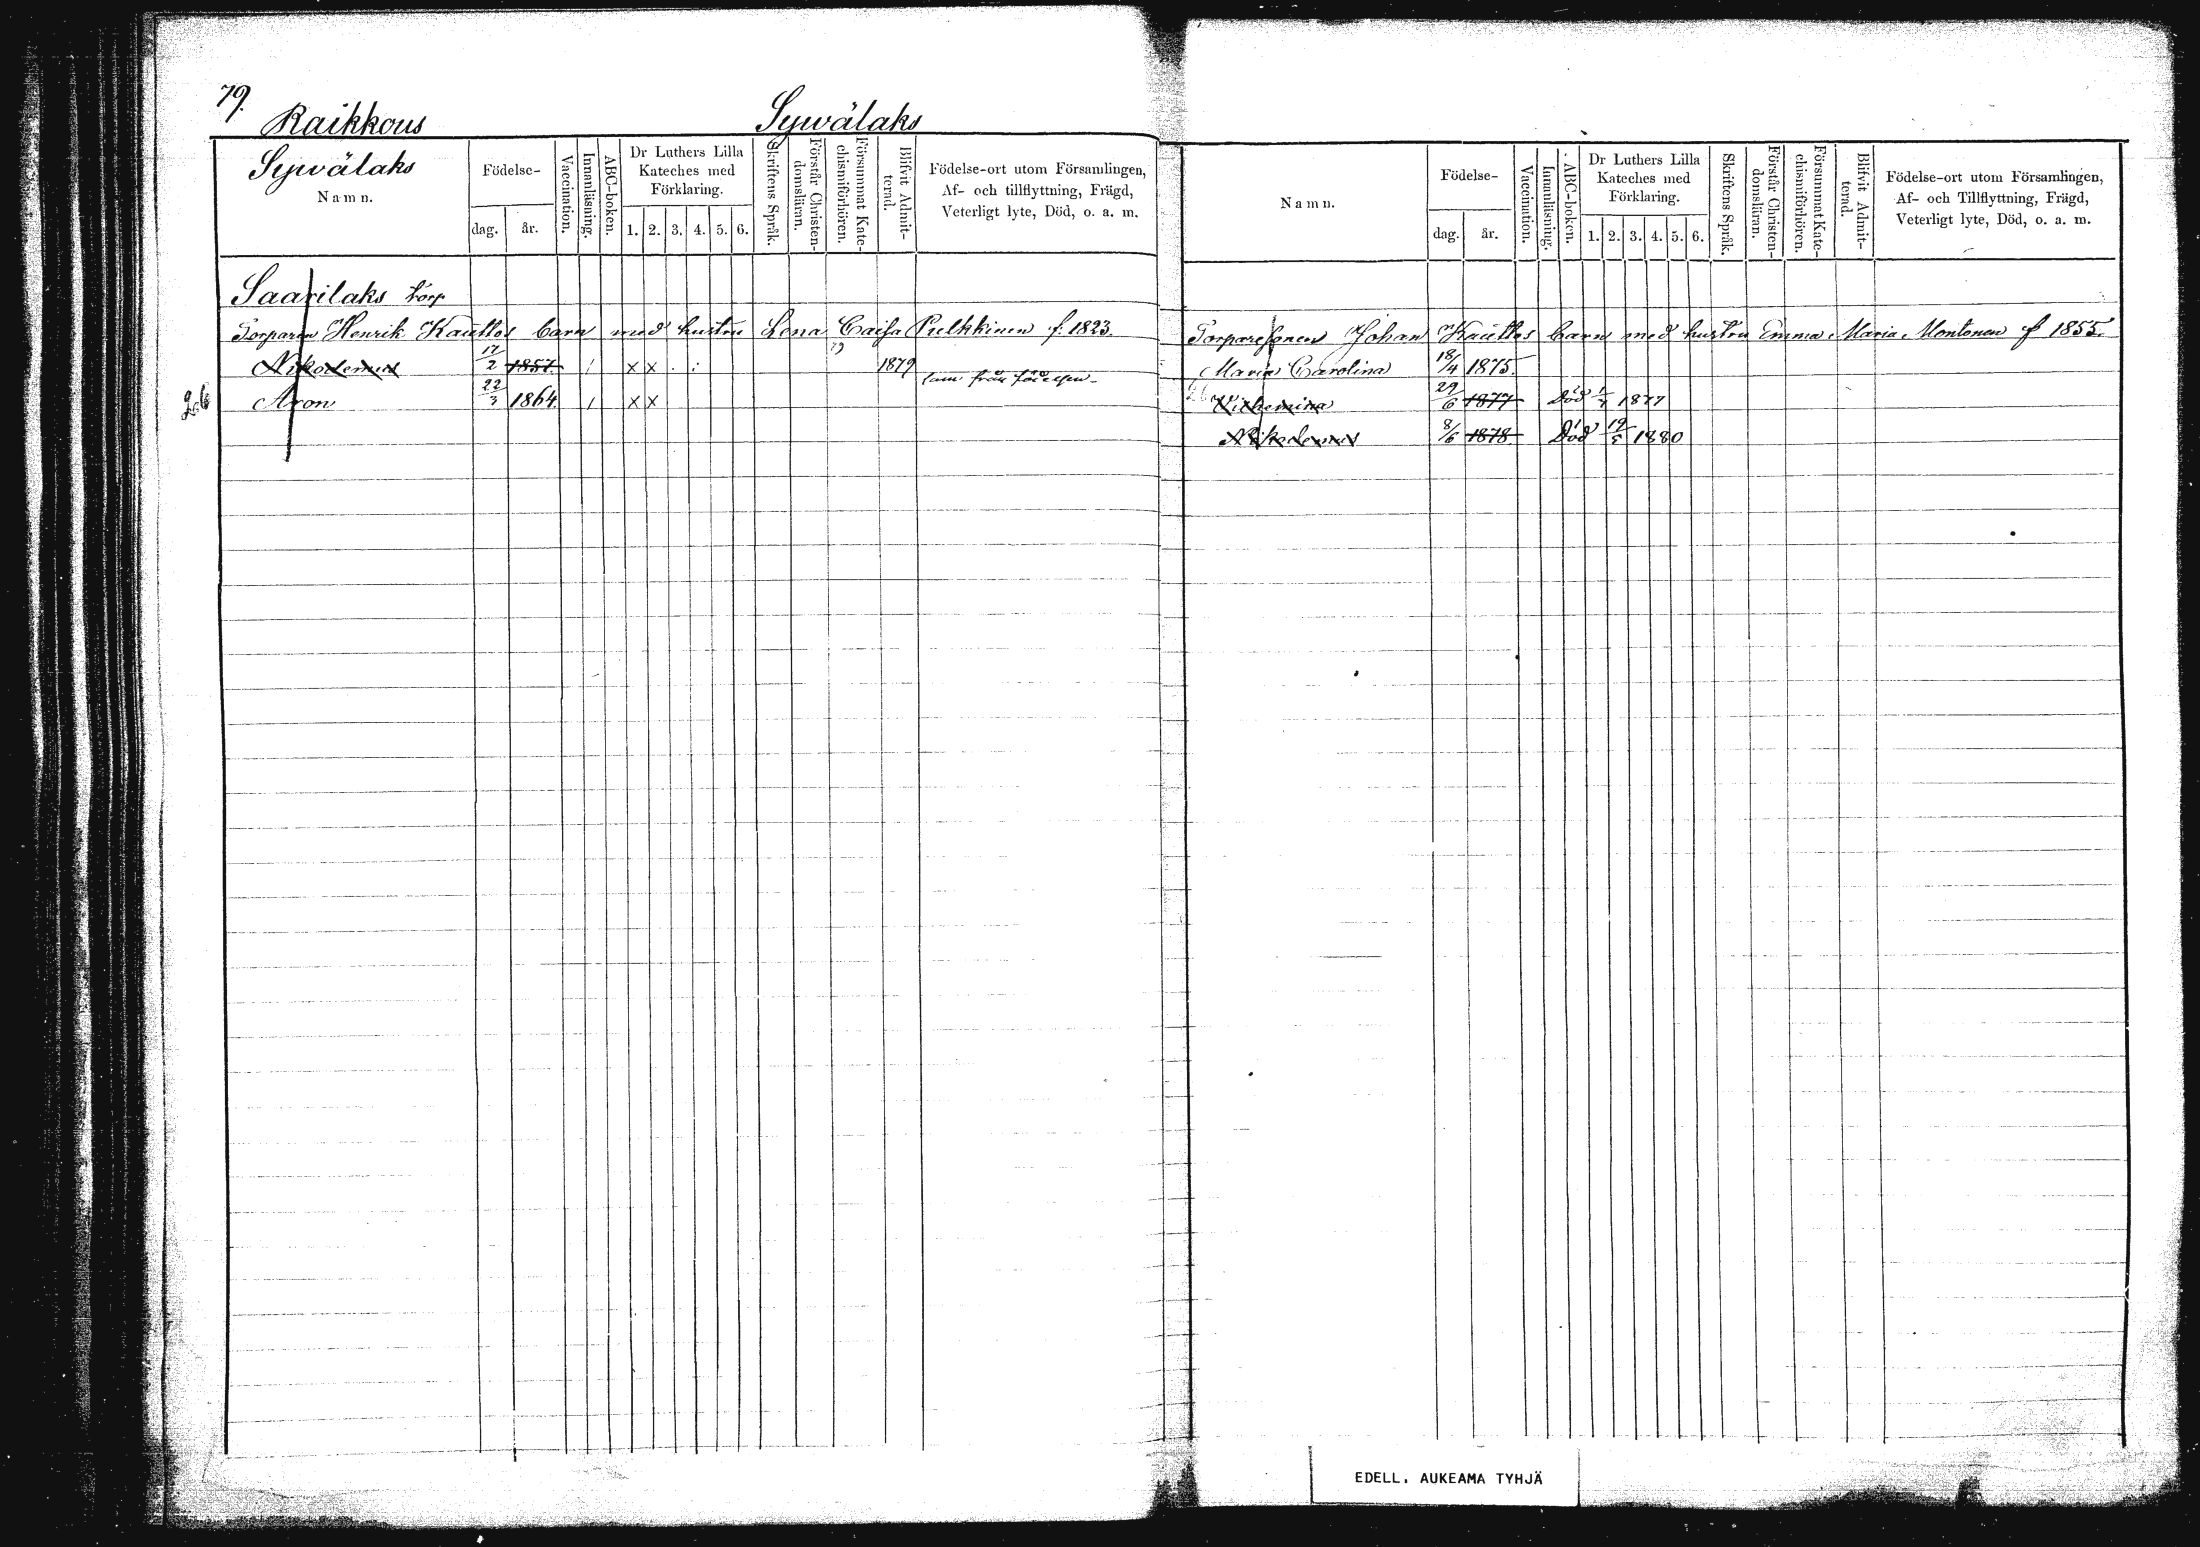 79.
Raikkous Sywälaks
Sywälaks
Namn.
Födelse-
dag. år.
Vaccination.
Innanläsning.
ABC-boken.
Dr Luthers Lilla
Kateches med
Förklaring.
1. 2. 3. 4. 5. 6.
Skriftens Språk.
Förstår Christen-
domsläran.
Försummat Kate-
chismiförhören.
Blifvit Admit-
terad.
Födelse-ort utom Församlingen,
Af- och tillflyttning, Frägd,
Veterligt lyte, Död, o. a. m.
Saarilaks torp
Torparen Henrik Kauttos barn med hustru Lena Caisa Pulkkinen f. 1823.
Nikodemus 17/2 1857. / x x 1879 lam från födelsen-
26 Aron 22/3 1864. / x x
Namn.
Födelse-
dag. år.
Vaccination.
Innanläsning.
ABC-boken.
Dr Luthers Lilla
Kateches med
Förklaring.
1. 2. 3. 4. 5. 6.
Skriftens Språk.
Förstår Christen-
domsläran.
Försummat Kate-
chismiförhören.
Blifvit Admit-
terad.
Födelse-ort utom Församlingen,
Af- och Tillflyttning, Frägd,
Veterligt lyte, Död, o. a. m.
Torparesonen Johan Kauttos barn med hustru Emma Maria Montonen f 1855.
Maria Carolina 18/4 1875.
Wilhemina 29/6 1877 Död 1877
Nikodemus 8/6 1878 Död 19/5 1880
EDELL. AUKEAMA TYHJÄ